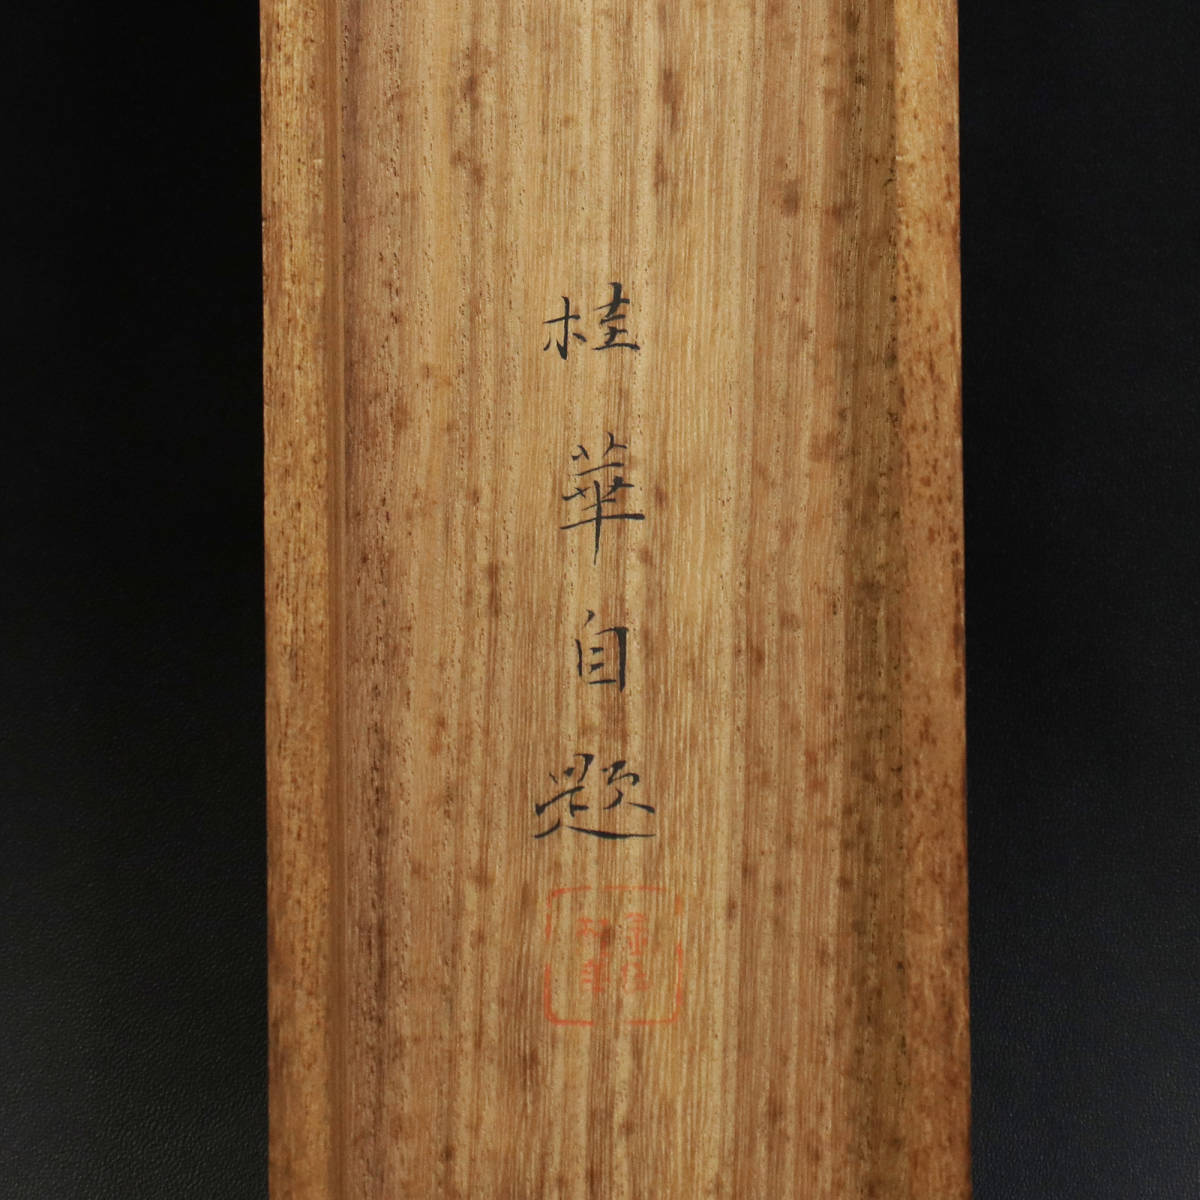 桂華自題